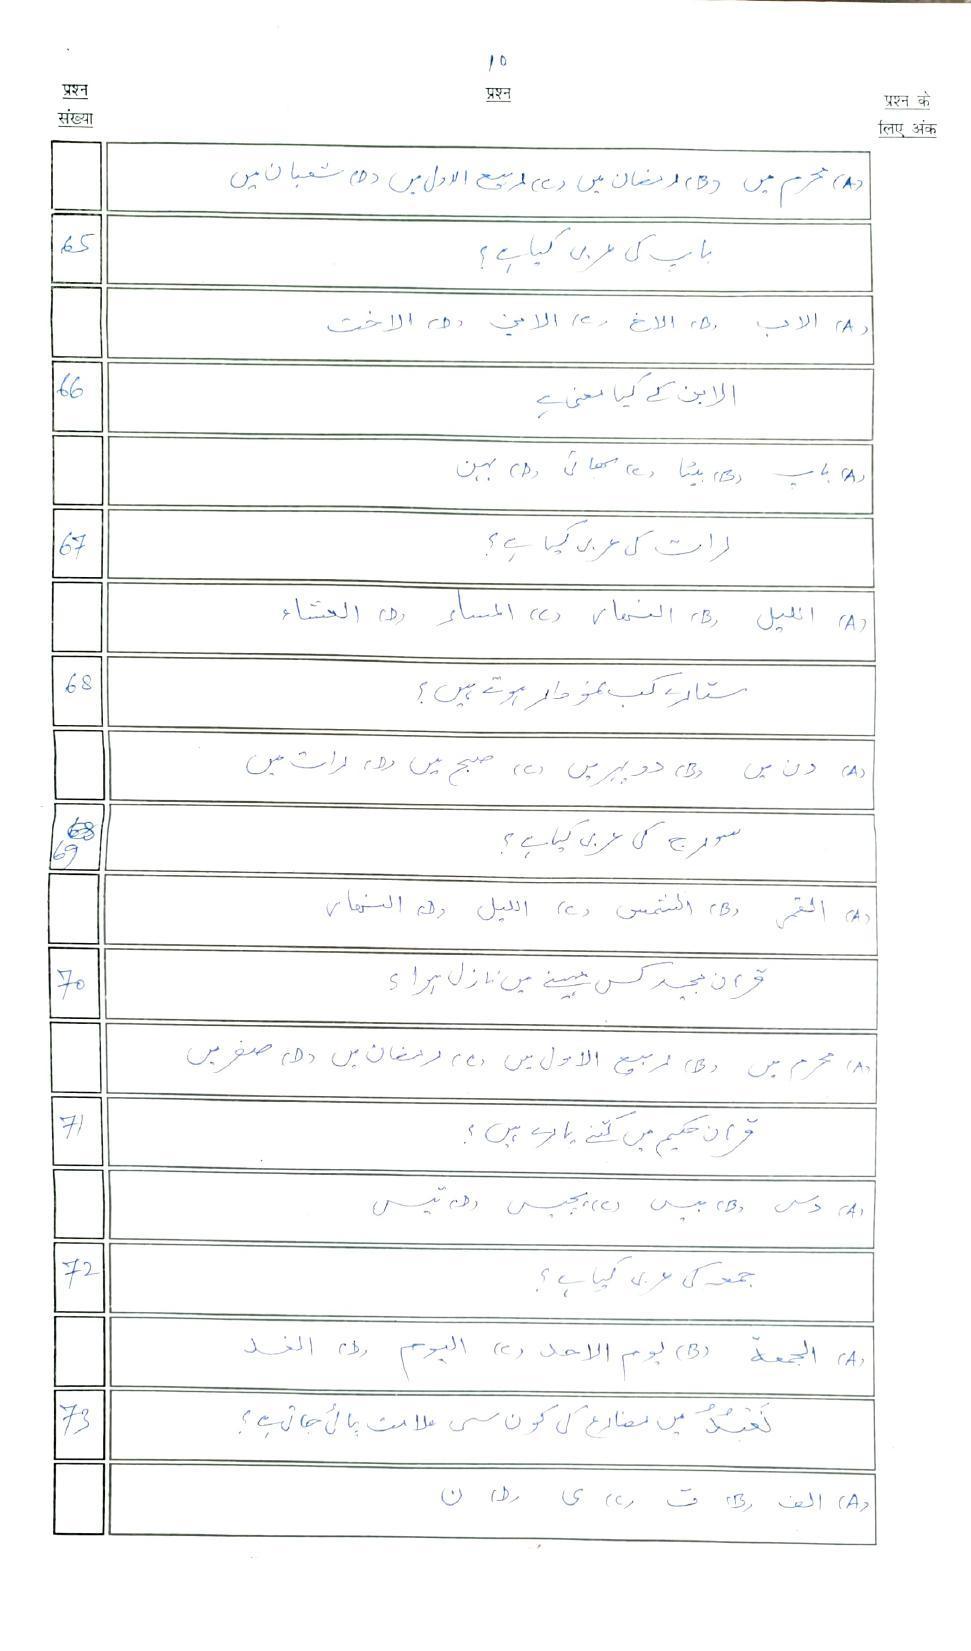 10
प्रश्न संख्या
प्रश्न
प्रश्न के लिए अंक
(A) محرم میں (B) رمضان میں (C) ربیع الاول میں (D) شعبان میں
65 باپ کی عربی کیا ہے؟
(A) الاب (B) الاخ (C) الابن (D) الاخت
66 الابن کے کیا معنی ہے
(A) باپ (B) بیٹا (C) بھائی (D) بہن
67 رات کی عربی کیا ہے؟
(A) اللیل (B) النہار (C) المساء (D) العشاء
68 ستارے کب نمودار ہوتے ہیں؟
(A) دن میں (B) دوپہر میں (C) صبح میں (D) رات میں
69 سورج کی عربی کیا ہے؟
(A) القمر (B) الشمس (C) اللیل (D) النہار
70 قرآن مجید کس مہینے میں نازل ہوا؟
(A) محرم میں (B) ربیع الاول میں (C) رمضان میں (D) صفر میں
71 قرآن حکیم میں کتنے پارے ہیں؟
(A) دس (B) بیس (C) پچیس (D) تیس
72 جمعہ کی عربی کیا ہے؟
(A) الجمعة (B) یوم الاحد (C) الیوم (D) الغد
73 نَعْبُدُ میں مضارع کی کون سی علامت پائی جاتی ہے؟
(A) الف (B) ت (C) ی (D) ن